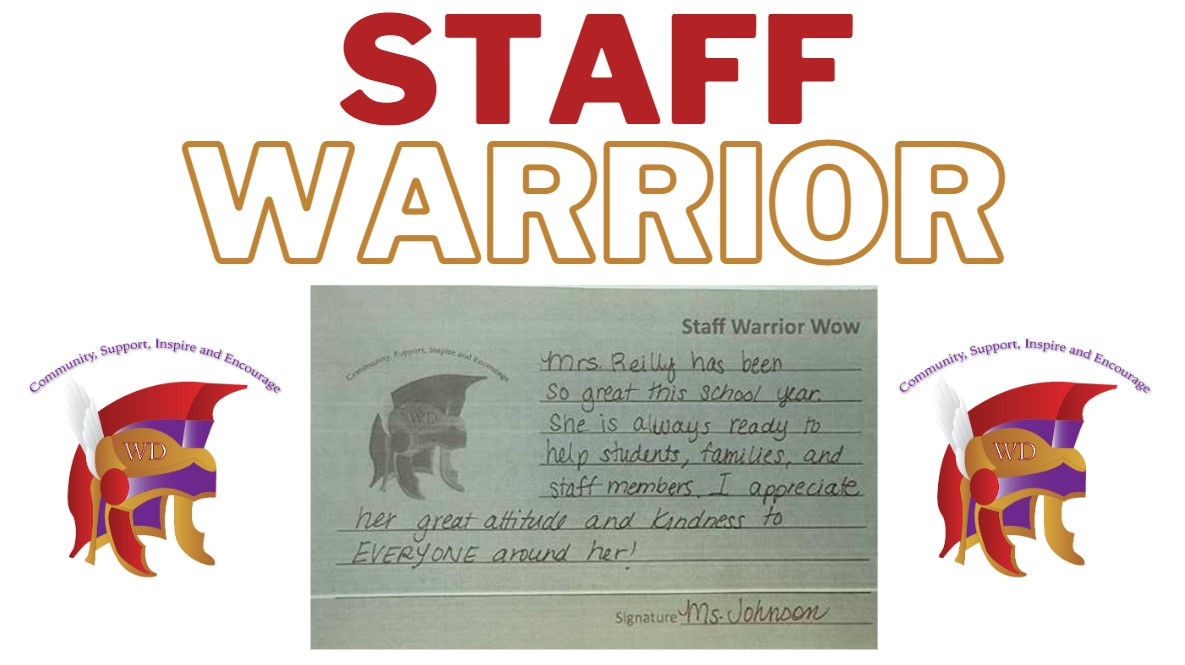 STAFF
WARRIOR
Staff Warrior Wow
Community, Support, Inspire and Encourage
WD
Mrs. Reilly has been
so great this school year.
She is always ready to
help students, families, and
staff members. I appreciate
her great attitude and kindness to
EVERYONE around her!
Signature Ms. Johnson
Community, Support, Inspire and Encourage
WD
Community, Support, Inspire and Encourage
WD